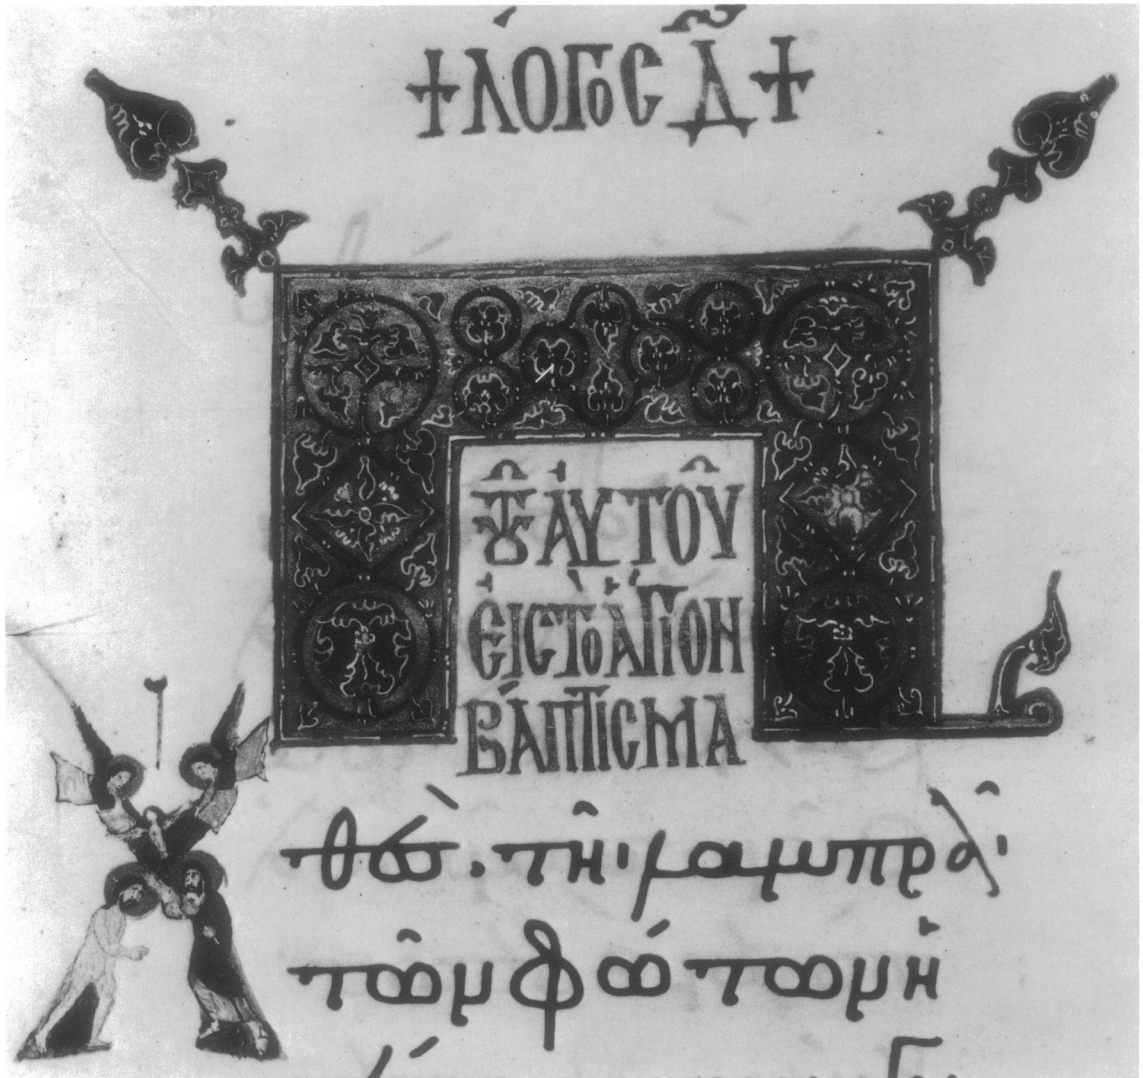 + ΛΌΓΟϹ Δ̄ +
ΤΟΥ͂ ἈΥΤΟΥ͂
ἘΙϹ ΤῸ ἍΓΙΟΝ
ΒΆΠΤΙϹΜΑ
Χθὲς· τῆι λαμπρᾶι
τῶν φώτων ἡ